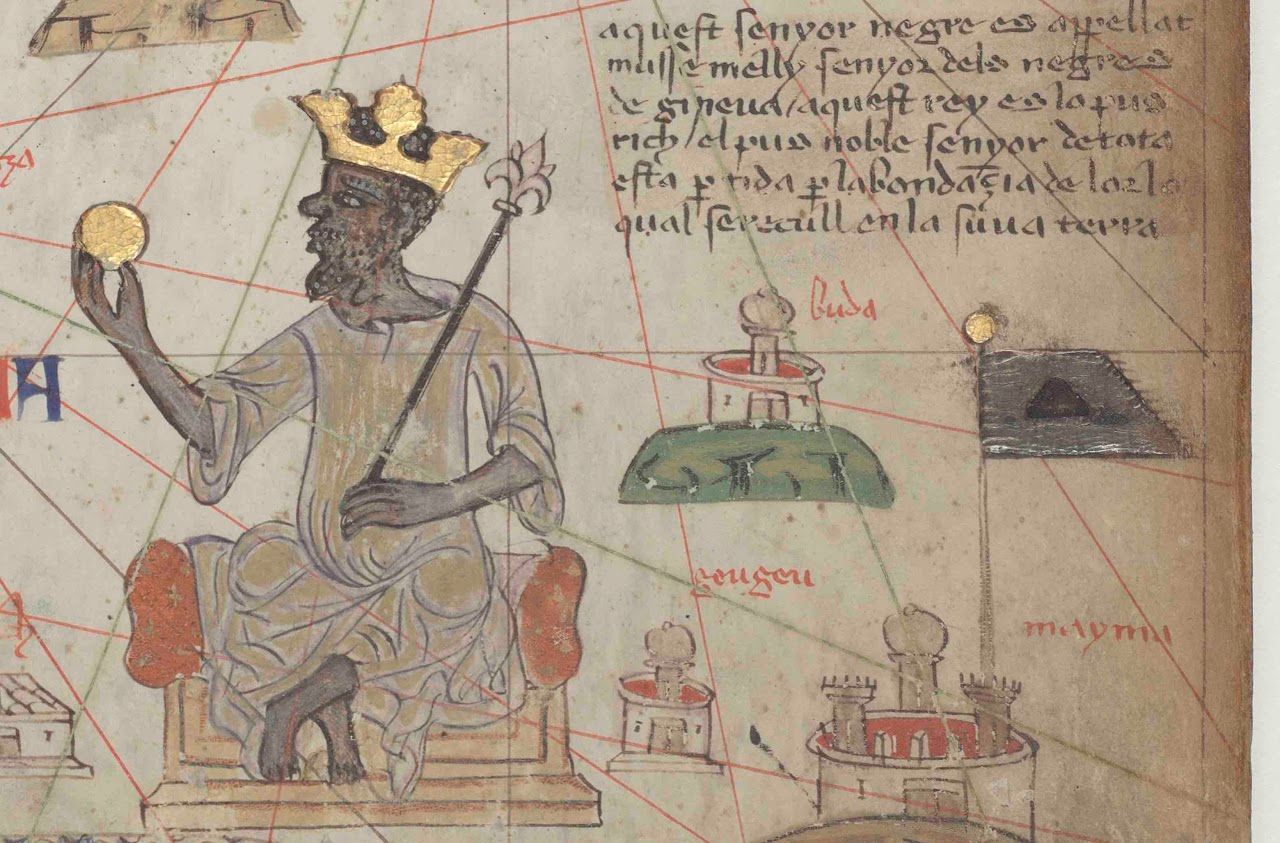 aquest senyor negre es appellat
musse melly senyor dels negres
de gineva / aquest rey es lo pus
rich / el pus noble senyor de tota
esta p̄tida p̄ labondāçia de lor lo
qual se recull en la suua terra
buda
geugeu
mayma